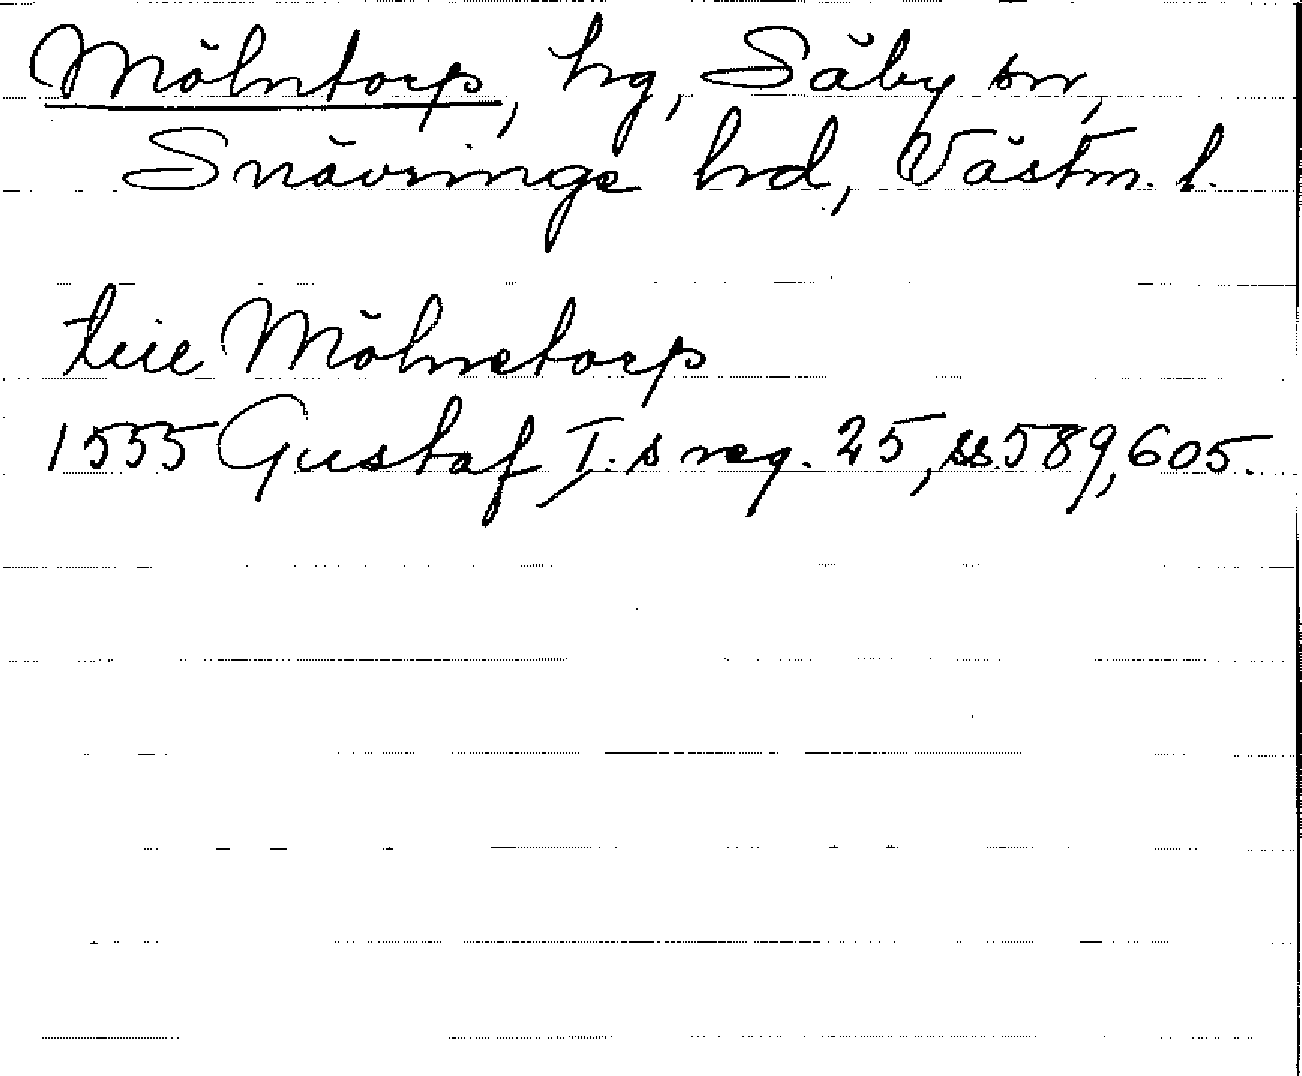 Mölntorp, hg, Säby sn,
Snävringe hrd, Västm. l.
tiil Mölnetorp
1555 Gustaf I.s reg. 25, ss. 589, 605.